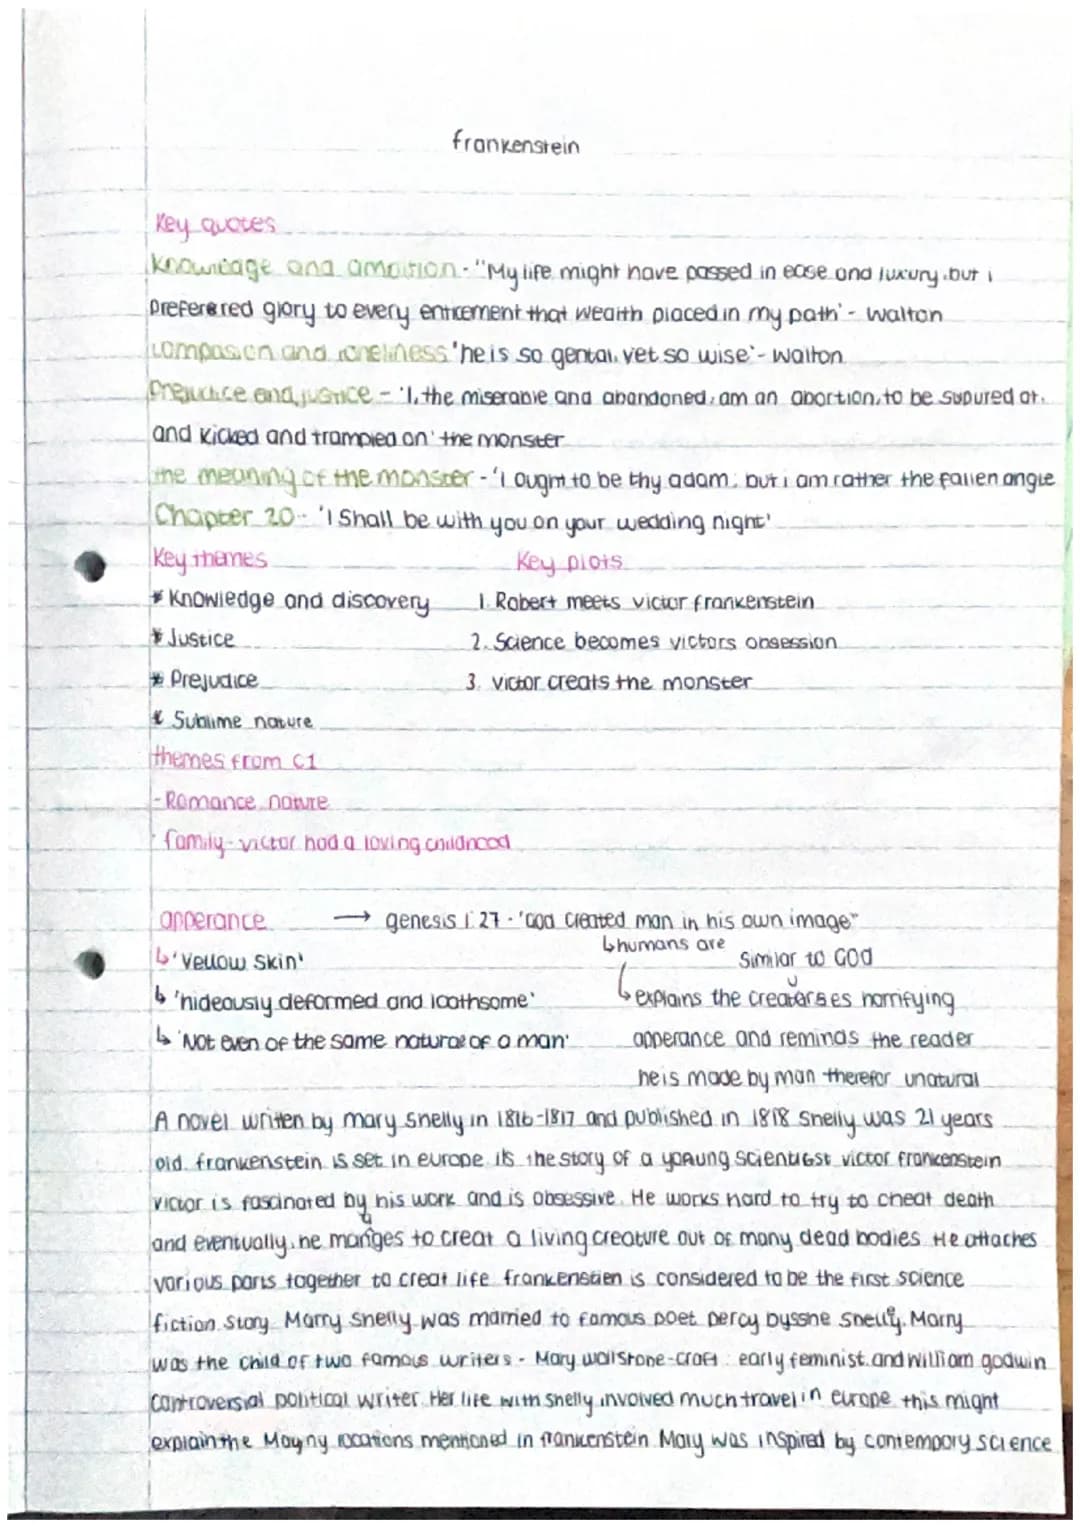 frankenstein
Key quotes
Knowleage and ambition - "My life might have passed in ease and luxury, but i
preferered glory to every enticement that wealth placed in my path' - Walton
compasion and loneliness 'he is so gental, yet so wise' - Walton
Prejudice and justice - 'I, the miserable and abandoned, am an abortion, to be supured at,
and kicked and trampled on' the monster
the meaning of the monster - 'I ought to be thy adam, but i am rather the fallen angle
Chapter 20 - 'I Shall be with you on your wedding night'
Key themes Key plots
* Knowledge and discovery 1. Robert meets victor frankenstein
* Justice 2. Science becomes victors obsession
* Prejudice 3. victor creats the monster
* Sublime nature
themes from C1
- Romance nature
- family - victor had a loving childhood
apperance → genesis 1:27 - 'God created man in his own image"
↳ 'Yellow skin' ↳ humans are similar to GOD
↳ 'hideously deformed and loathsome' ↳ explains the creaturses horrifying
↳ 'Not even of the same natural of a man' apperance and reminds the reader
he is made by man therefor unatural
A novel written by mary shelly in 1816-1817 and published in 1818 shelly was 21 years
old. frankenstein is set in europe its the story of a young scientist victor frankenstein
victor is fascinated by his work and is obsessive. He works hard to try to cheat death
and eventually, he manges to creat a living creature out of many dead bodies He attaches
various parts together to creat life frankenstien is considered to be the first science
fiction story Marry shelly was married to famous poet percy bysshe shelly. Marry
was the child of two famous writers - Mary wollstone-craft : early feminist and william godwin
controversial political writer. Her life with shelly involved much travel in europe this might
explain the many locations mentioned in frankenstein Mary was inspired by contempory science